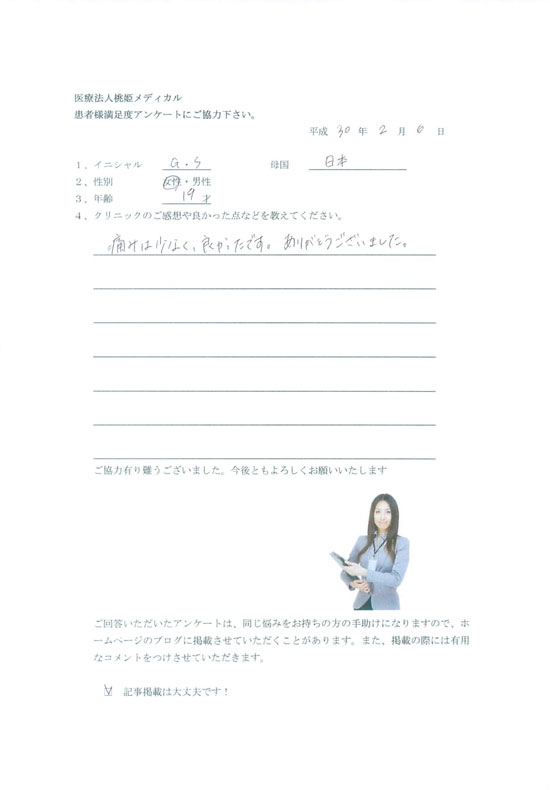 医療法人桃姫メディカル
患者様満足度アンケートにご協力下さい。
平成 30 年 2 月 6 日
1、イニシャル G・S 母国 日本
2、性別 女性・男性
3、年齢 19 才
4、クリニックのご感想や良かった点などを教えてください。
痛みは少なく、良かったです。ありがとうございました。
ご協力有り難うございました。今後ともよろしくお願いいたします
ご回答いただいたアンケートは、同じ悩みをお持ちの方の手助けになりますので、ホ
ームページのブログに掲載させていただくことがあります。また、掲載の際には有用
なコメントをつけさせていただきます。
☑ 記事掲載は大丈夫です！